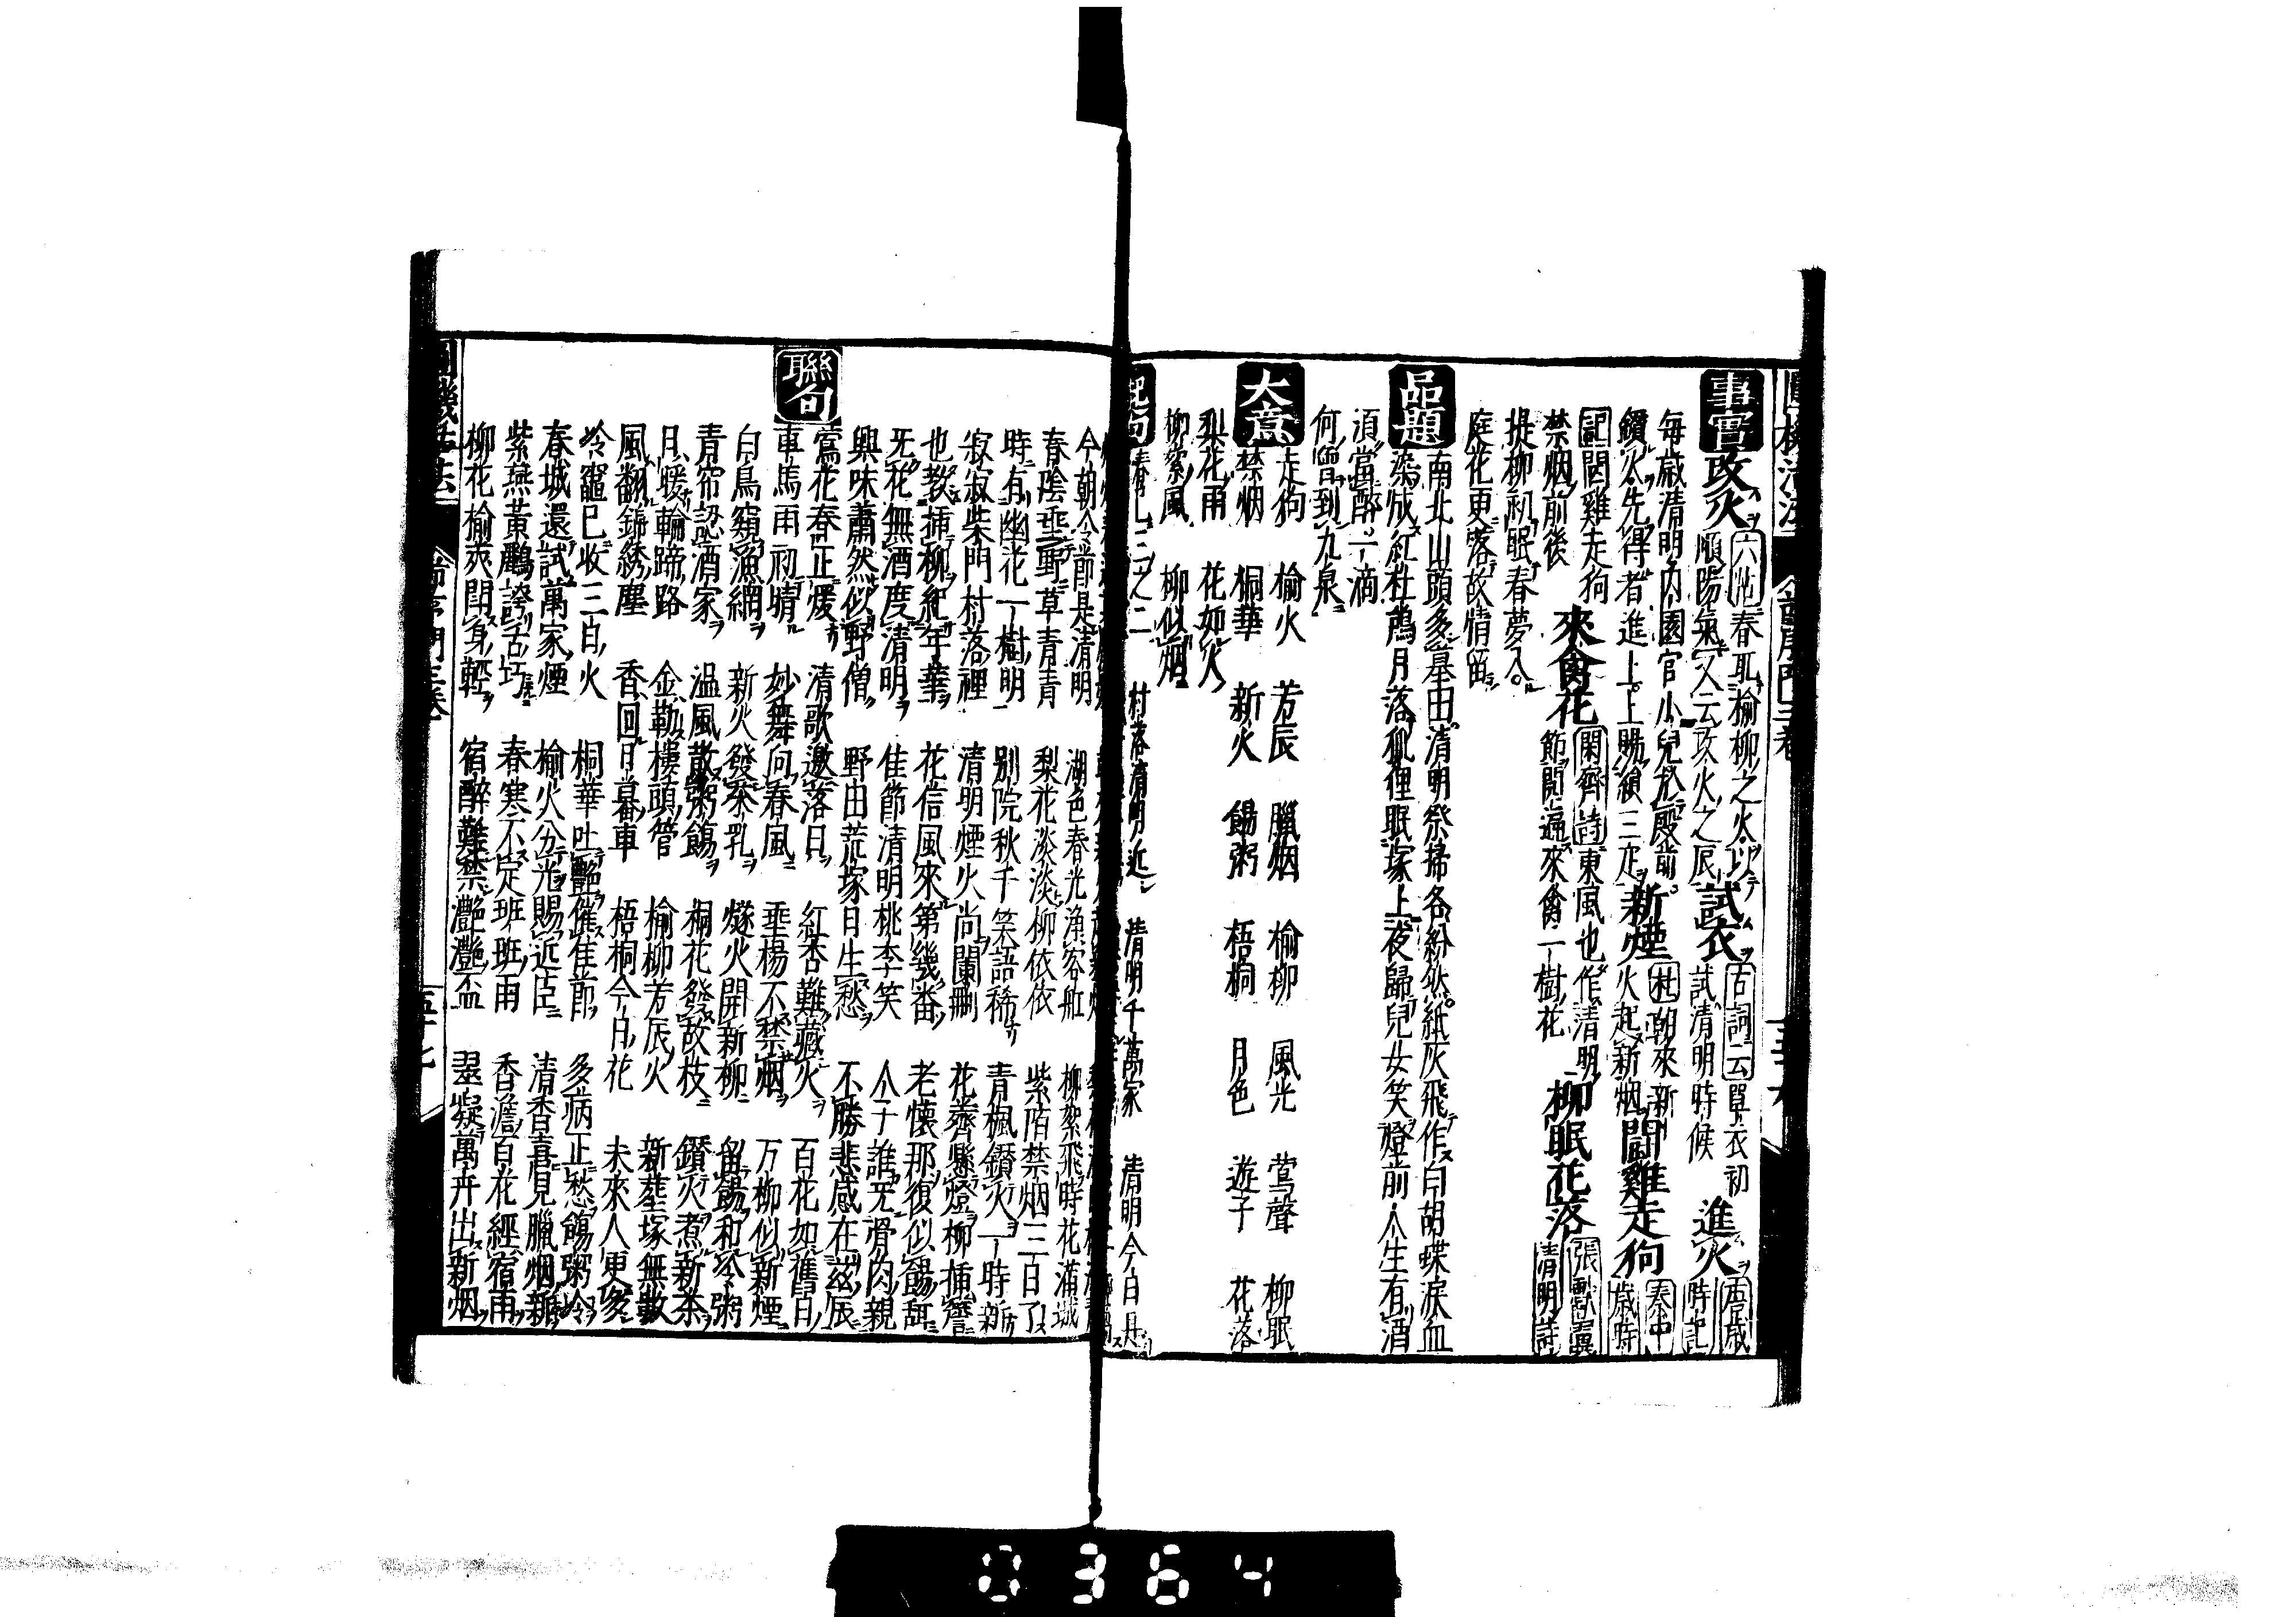 事實
改火 六帖 春取榆柳之火以
順陽氣又云改火之辰
試衣 古詞云 單衣初
試清明時候
進火 歲時記
每歲清明內園官小兒於殿前
鑽火先得者進上上賜絹三疋
新煙 杜 朝來新
火起新烟
鬪雞走狗 秦中歲時
記 鬪雞走狗
禁烟前後
來禽花 閑齊詩 東風也作清明
節開遍來禽一樹花
柳眠花落 張 清明詩
提柳初眠春夢入
庭花更落故情留
品題
南北山頭多墓田清明祭掃各紛然紙灰飛作白胡蝶淚血
染成紅杜鵑月落狐狸眠塚上夜歸兒女笑燈前人生有酒
須當醉一滴
何曾到九泉
大意
走狗 榆火 芳辰 臘烟 榆柳 風光 鶯聲 柳眠
禁烟 桐華 新火 餳粥 梧桐 月色 遊子 花落
梨花雨 花如火
柳絮風 柳似烟
起句
村落清明近 清明千萬家 清明今日是
今朝令節是清明 湖色春光漁客舡 柳絮飛時花滿城
春陰垂野草青青 梨花淡淡柳依依 紫陌禁烟三日了
時有幽花一樹明 別院秋千笑語稀 青楓鑽火一時新
寂寂柴門村落裡 清明煙火尚闌刪 花薺懸燈柳插簷
也教插柳紀年華 花信風來第幾番 老懷那復似餳甜
無花無酒度清明 佳節清明桃李笑 人子誰無骨肉親
興味蕭然似野僧 野田荒塚日生愁 不勝悲感在茲辰
聯句
鶯花春正煖 清歌邀落日 紅杏難藏火 百花如舊日
車馬雨初晴 妙舞向春風 垂楊不禁烟 万柳似新煙
白鳥窺漁網 新火發茶乳 燧火開新柳 留餳和冷粥
青帘認酒家 温風散粥餳 桐花發故枝 鑽火煮新茶
月暖輪蹄路 金勒樓頭管 榆柳芳辰火 新塋塚無數
風翻錦綉塵 香回月暮車 梧桐今日花 未來人更多
冷竈已收三白火 桐華吐艷催佳節 多病正愁餳粥冷
春城還試萬家煙 榆火分光賜近臣 清香喜見臘烟新
紫燕黃鸝誇舌巧 春寒不定班班雨 香濃百花經宿雨
柳花榆莢閗身輕 宿醉難禁灔灔盃 翠凝萬井出新烟
0364